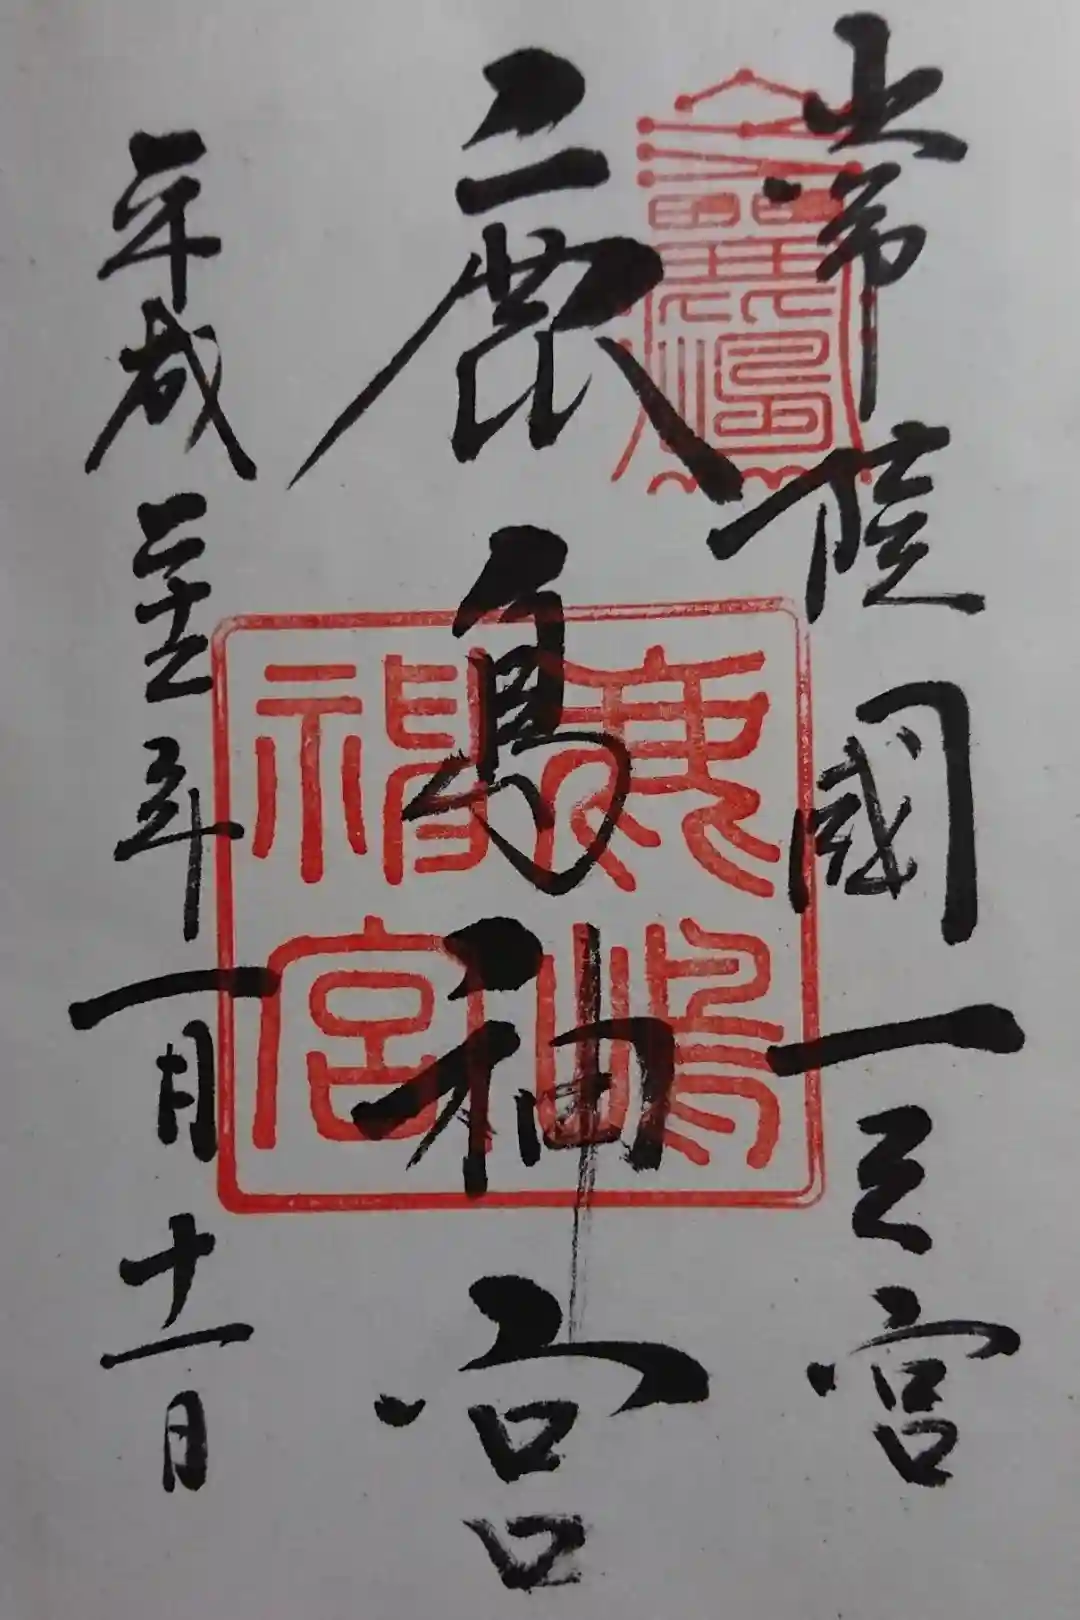 常陸國一之宮
鹿島神宮
平成二十五年一月十一日
鹿嶋神宮